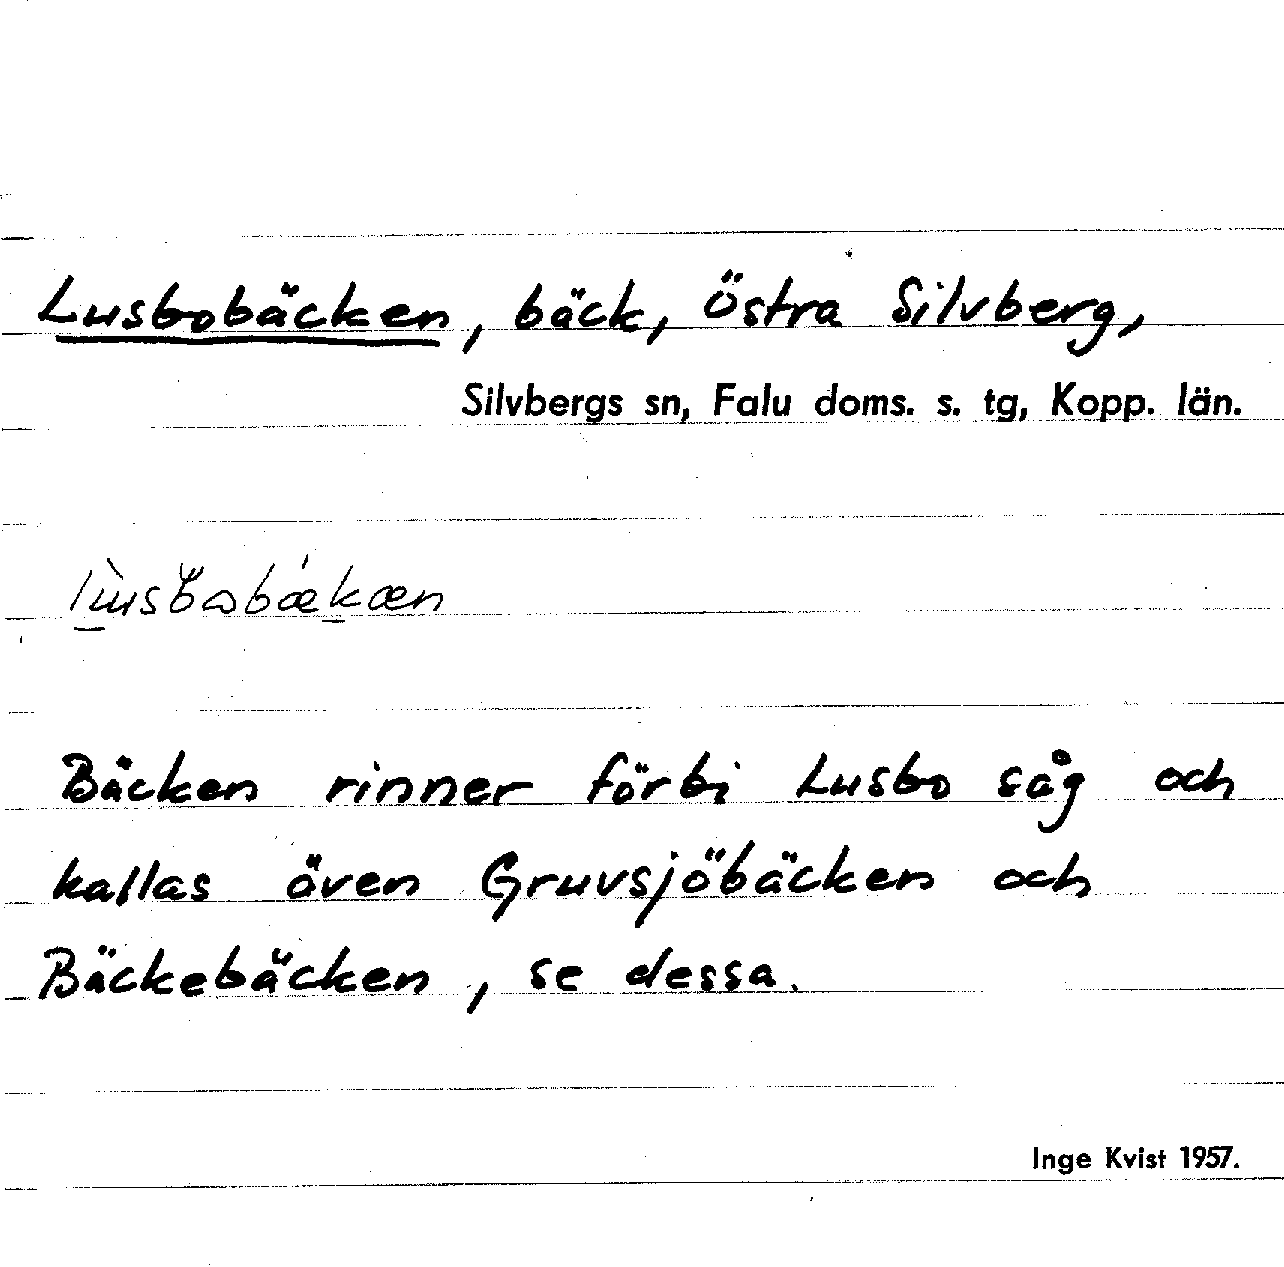 Lusbobäcken, bäck, Östra Silvberg,
Silvbergs sn, Falu doms. s. tg, Kopp. län.
Bäcken rinner förbi Lusbo såg och
kallas även Gruvsjöbäcken och
Bäckebäcken, se dessa.
Inge Kvist 1957.